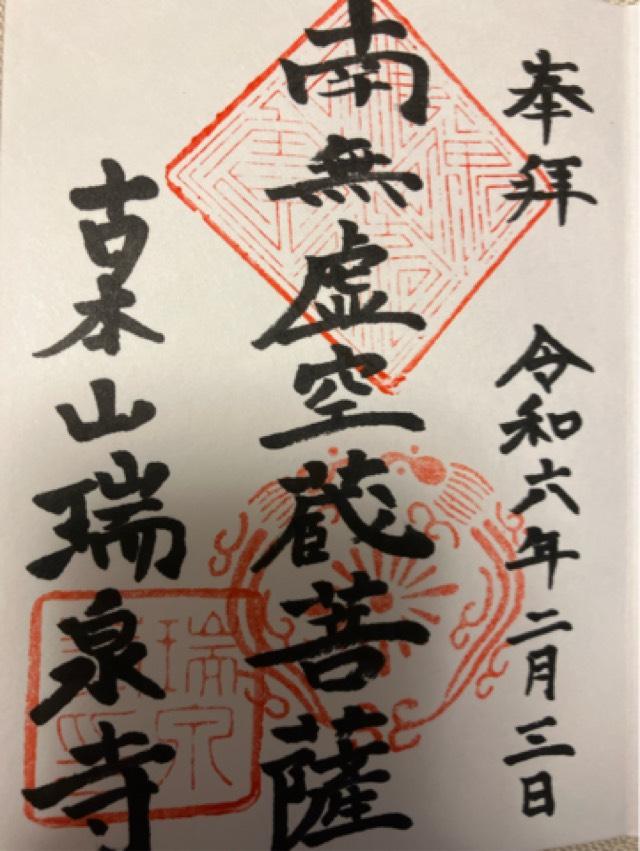 奉拝 令和六年二月三日
南無虚空蔵菩薩
古木山瑞泉寺